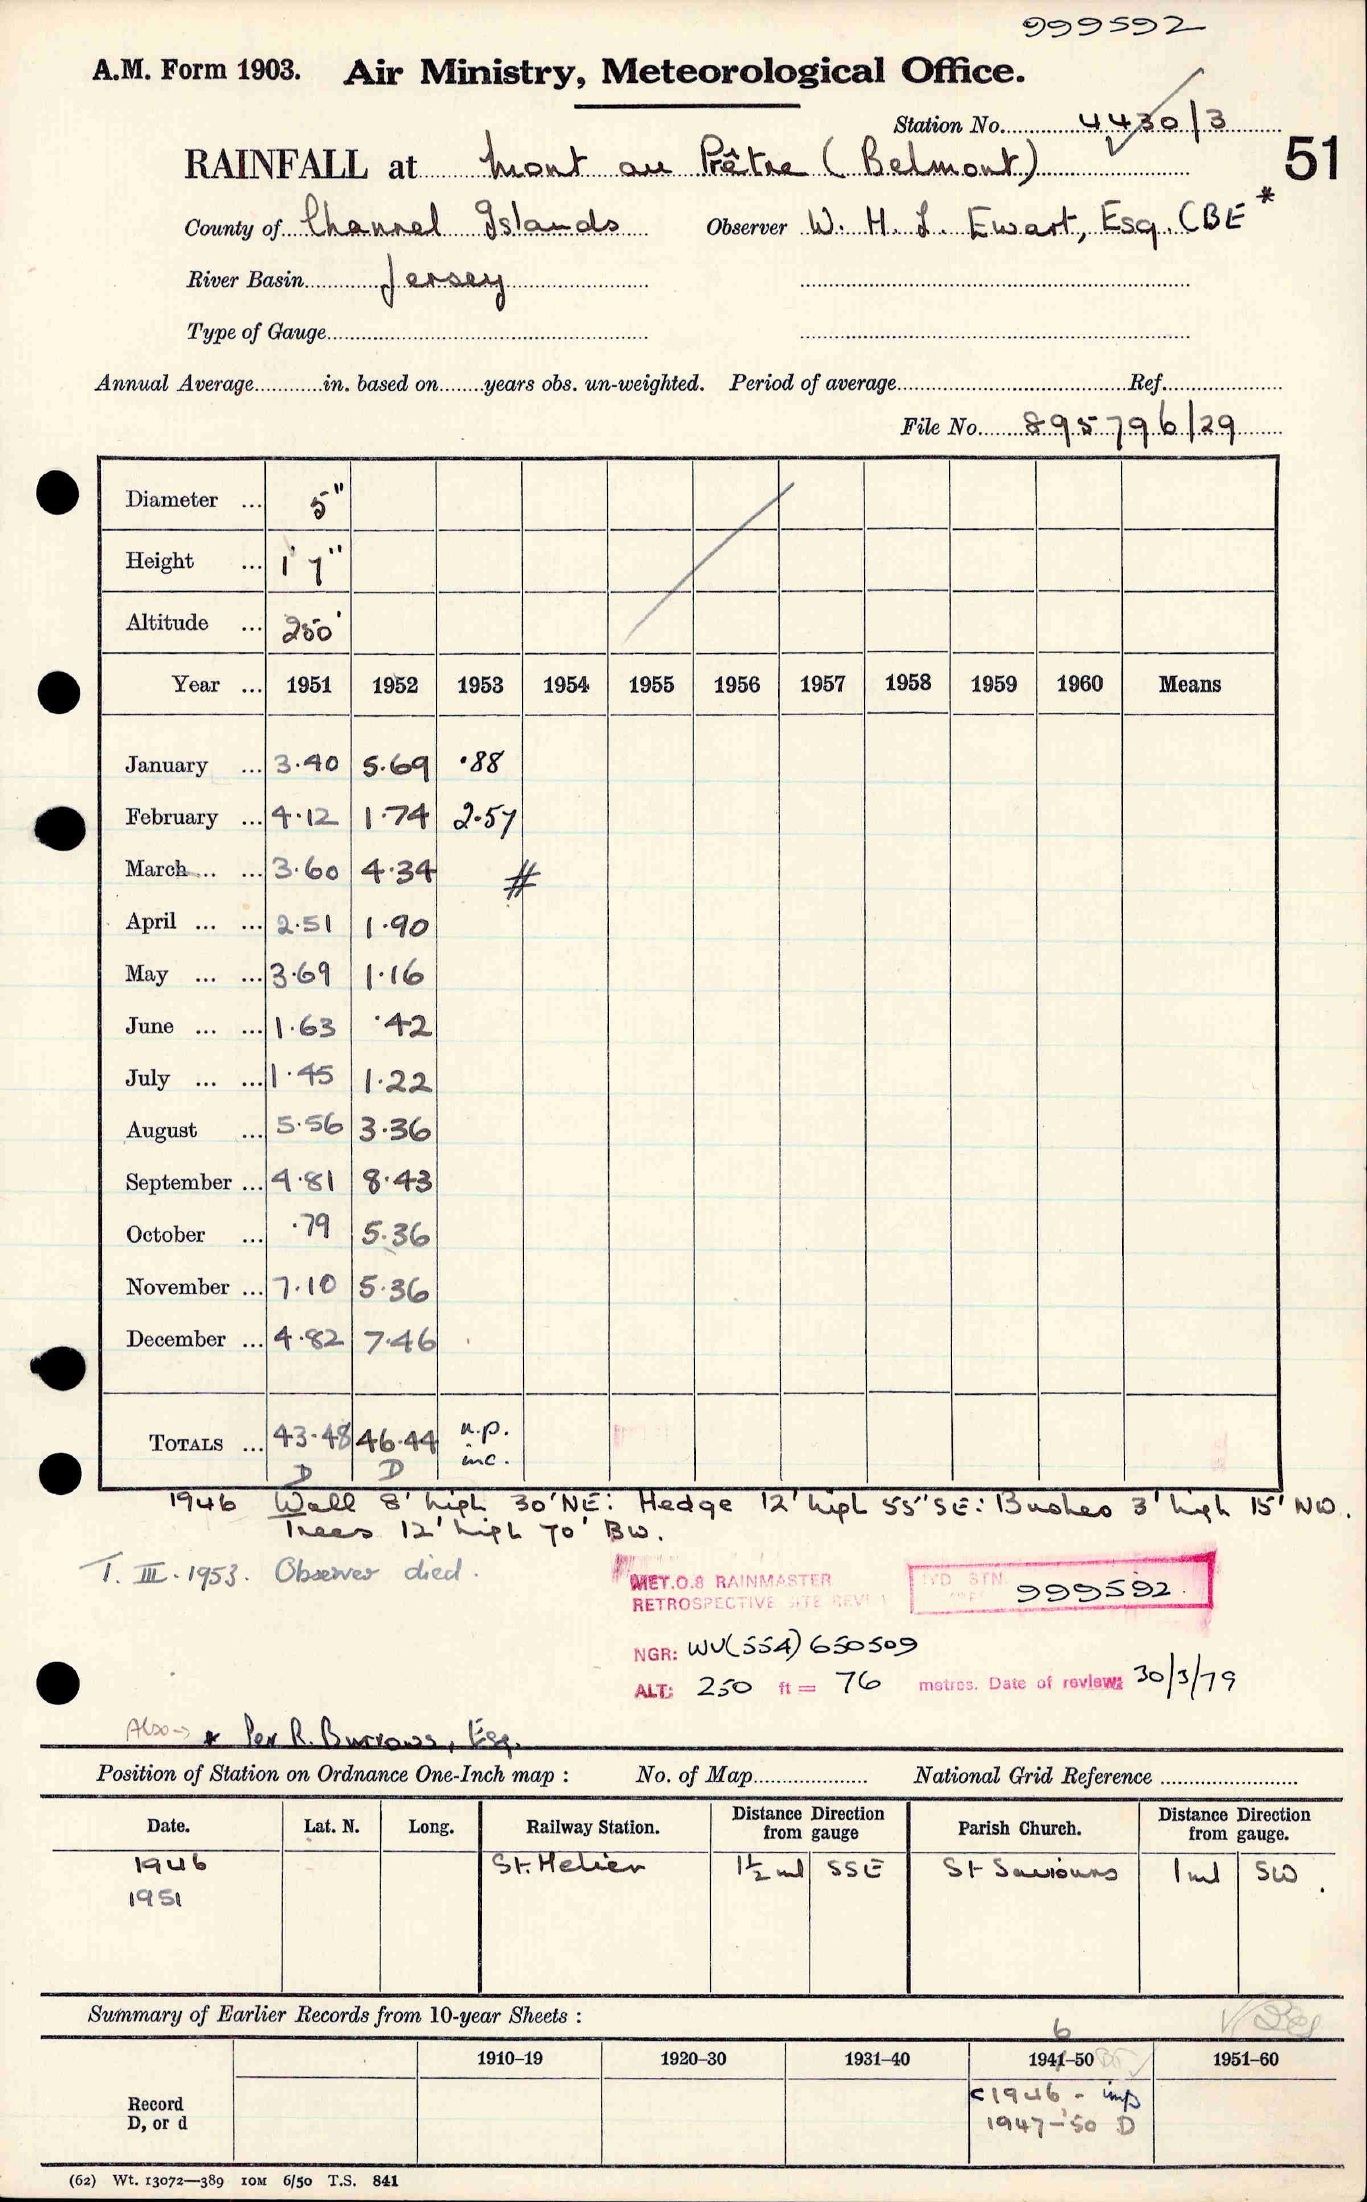 999592
A.M. Form 1903. Air Ministry, Meteorological Office.
Station No. 4430/3
51
RAINFALL at Mont au Prêtre (Belmont)
County of Channel Islands Observer W. H. L. Ewart, Esq. CBE *
River Basin Jersey
Type of Gauge
Annual Average in. based on years obs. un-weighted. Period of average Ref.
File No. 895796/29
Diameter ... 5"
Height ... 1' 7"
Altitude ... 250'
Year ... 1951 1952 1953 1954 1955 1956 1957 1958 1959 1960 Means
January ... 3.40 5.69 .88
February ... 4.12 1.74 2.57
March ... ... 3.60 4.34 #
April ... ... 2.51 1.90
May ... ... 3.69 1.16
June ... ... 1.63 .42
July ... ... 1.45 1.22
August ... 5.56 3.36
September ... 4.81 8.43
October ... .79 5.36
November ... 7.10 5.36
December ... 4.82 7.46
TOTALS ... 43.48 46.44 n.p. inc.
D D
1946 Wall 8' high 30' NE: Hedge 12' high 55" SE: Bushes 3' high 15' NW.
Trees 12' high 70' BW.
T. III. 1953. Observer died.
MET.O.8 RAINMASTER
RETROSPECTIVE SITE REVI
STN. 999592.
NGR: WV(554) 650509
ALT: 250 ft = 76 metres. Date of review: 30/3/79
Also → * Per R. Burrows, Esq.
Position of Station on Ordnance One-Inch map : No. of Map National Grid Reference
Date. Lat. N. Long. Railway Station. Distance Direction from gauge Parish Church. Distance Direction from gauge.
1946 St. Helier 1½ ml SSE St Saviours 1 ml SW.
1951
Summary of Earlier Records from 10-year Sheets :
6
1910–19 1920–30 1931–40 1941–50 1951–60
Record
D, or d
<1946 - imp
1947–'50 D
(62) Wt. 13072—389 10M 6/50 T.S. 841